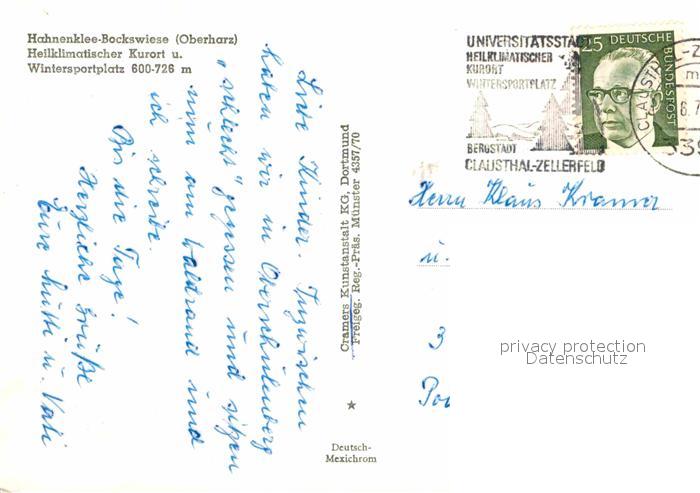 Hahnenklee-Bockswiese (Oberharz)
Heilklimatischer Kurort u.
Wintersportplatz 600-726 m
Liebe Kinder. Inzwischen
haben wir in Oberschulenberg
"schlecht" gegessen und sitzen
nun am Waldrand und
ich schreibe.
Bis die Tage!
Herzliche Grüße
Eure Mutti u. Vati
Cramers Kunstanstalt KG, Dortmund
Freigeg. Reg.-Präs. Münster 4357/70
Deutsch-
Mexichrom
UNIVERSITÄTSSTADT
HEILKLIMATISCHER
KURORT
WINTERSPORTPLATZ
BERGSTADT
CLAUSTHAL-ZELLERFELD
25 DEUTSCHE
BUNDESPOST
CLAUSTHAL-Z
m
6.7
339
Herrn Klaus Kramer
u.
3
Por
privacy protection
Datenschutz